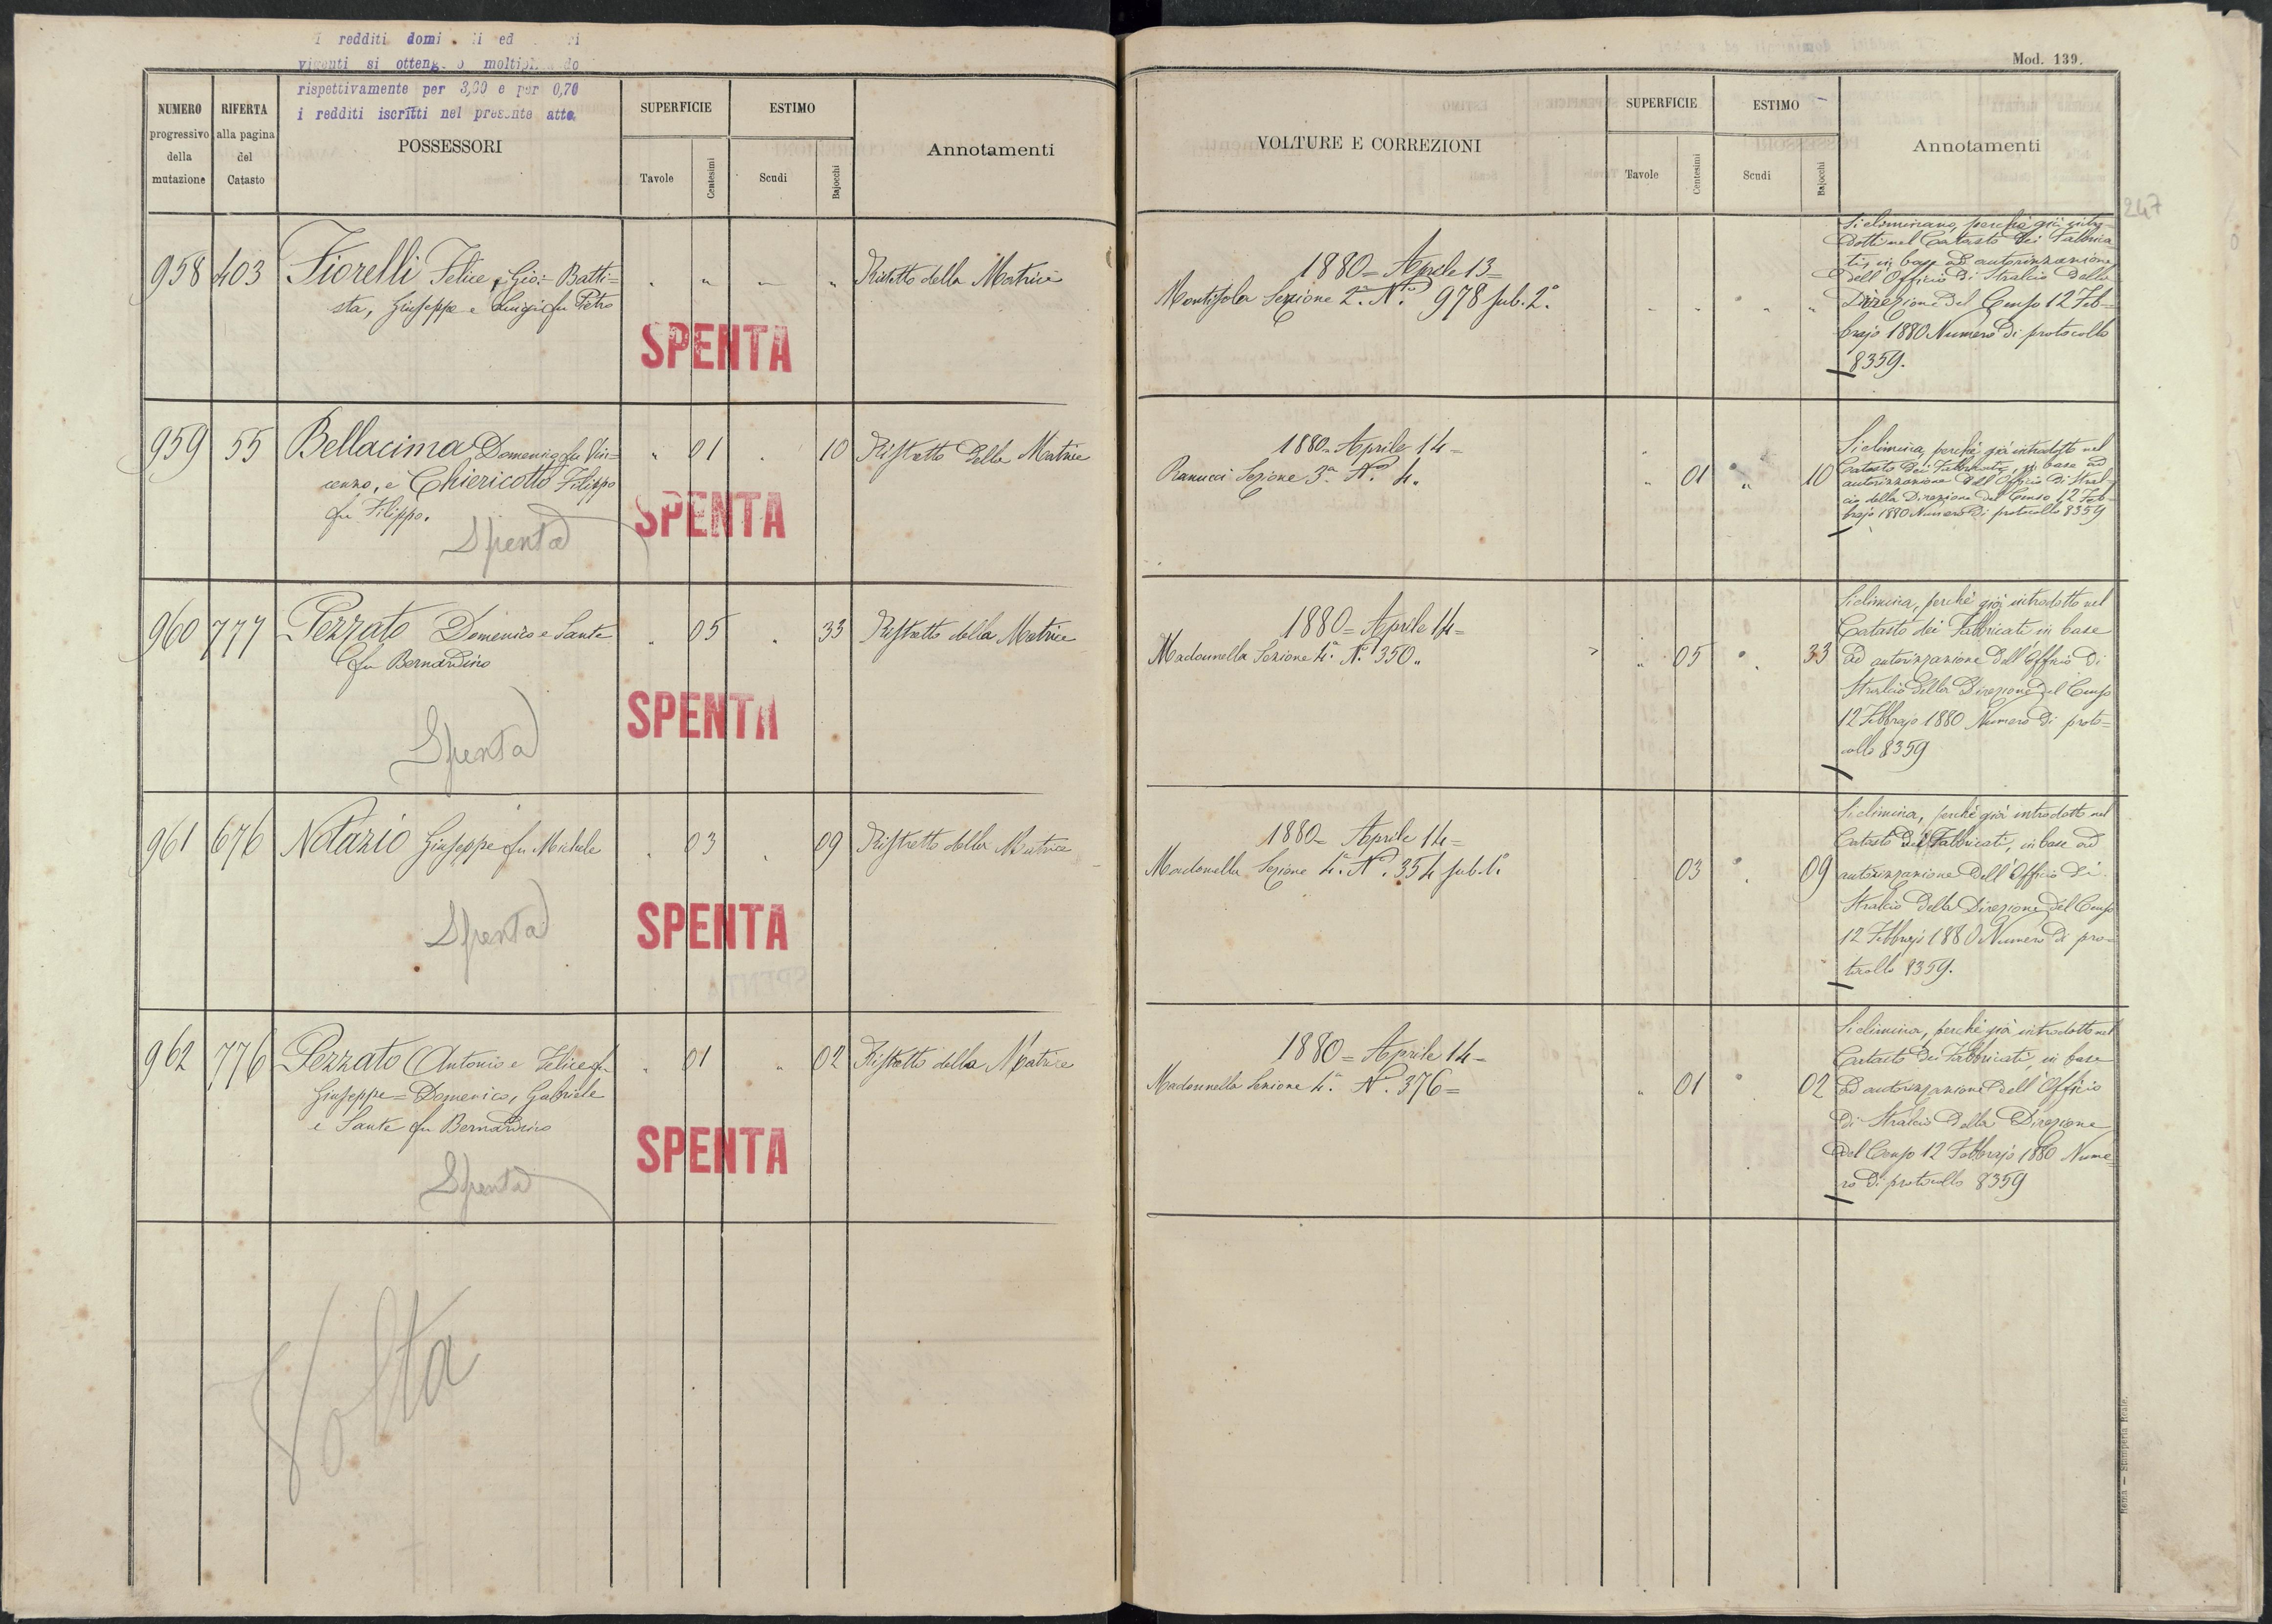 redditi domi ed
vigenti si
rispettivamente per 3,00 e per 0,70
i redditi iscritti nel presente atto
NUMERO
progressivo
della
mutazione
RIFERTA
alla pagina
del
Catasto
POSSESSORI
SUPERFICIE
Tavole
Centesimi
ESTIMO
Scudi
Bajocchi
Annotamenti
958 403 Fiorelli Felice, Gio:= Batti= " " " " Ristretto della Matrice
sta, Giuseppe e Luigi fu Pietro
SPENTA
959 55 Bellacima Domenico fu Vin= " 01 . 10 Ristretto della Matrice
cenzo, e Chiericotto Filippo
fu Filippo.
Spenta
SPENTA
960 777 Pezzato Domenico e Sante . 05 . 33 Ristretto della Matrice
fu Bernardino
Spenta
SPENTA
961 676 Notazio Giuseppe fu Michele . 03 . 09 Ristretto della Matrice
Spenta
SPENTA
962 776 Pezzato Antonio e Felice fu " 01 " 02 Ristretto della Matrice
Giuseppe = Domenico, Gabriele
e Sante fu Bernardino
Spenta
SPENTA
Volta
Mod. 139.
VOLTURE E CORREZIONI
SUPERFICIE
Tavole
Centesimi
ESTIMO
Scudi
Bajocchi
Annotamenti
247
1880 = Aprile 13 =
Montisola Sezione 2ª Nº 978 sub. 2º
Si eliminano, perchè già intro=
dotti nel Catasto dei Fabbrica
ti, in base ad autorizzazione
dell'Officio di Stralcio della
Direzione del Censo 12 Feb=
brajo 1880 Numero di protocollo
8359.
1880 = Aprile 14 =
Ranucci Sezione 3ª Nº 4. " 01 " 10
Si elimina, perchè già introdotto nel
Catasto dei Fabbricati, in base ad
autorizzazione dell'Officio di Stral=
cio della Direzione del Censo 12 Feb=
brajo 1880 Numero di protocollo 8359
1880 = Aprile 14 =
Madonnella Sezione 4ª Nº 350 " " 05 . 33
Si elimina, perchè già introdotto nel
Catasto dei Fabbricati in base
ad autorizzazione dell'Officio di
Stralcio della Direzione del Censo
12 Febbrajo 1880 Numero di proto=
collo 8359
1880 = Aprile 14 =
Madonnella Sezione 4ª Nº 354 sub. 1º . 03 . 09
Si elimina, perchè già introdotto nel
Catasto dei Fabbricati, in base ad
autorizzazione dell'Officio di
Stralcio della Direzione del Censo
12 Febbrajo 1880 Numero di pro=
tocollo 8359.
1880 = Aprile 14 =
Madonnella Sezione 4ª Nº 376 = " 01 . 02
Si elimina, perchè già introdotto nel
Catasto dei Fabbricati, in base
ad autorizzazione dell'Officio
di Stralcio della Direzione
del Censo 12 Febbrajo 1880 Nume=
ro di protocollo 8359
Roma — Stamperia Reale.